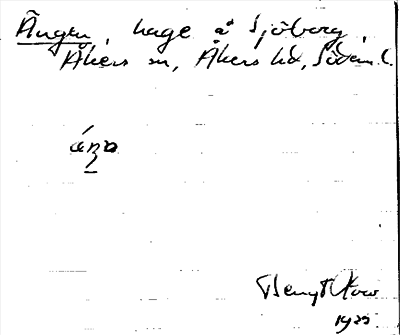 Ängen, hage å Sjöberg,
Åkers sn, Åkers hd, Söderml.
Bengt
1925